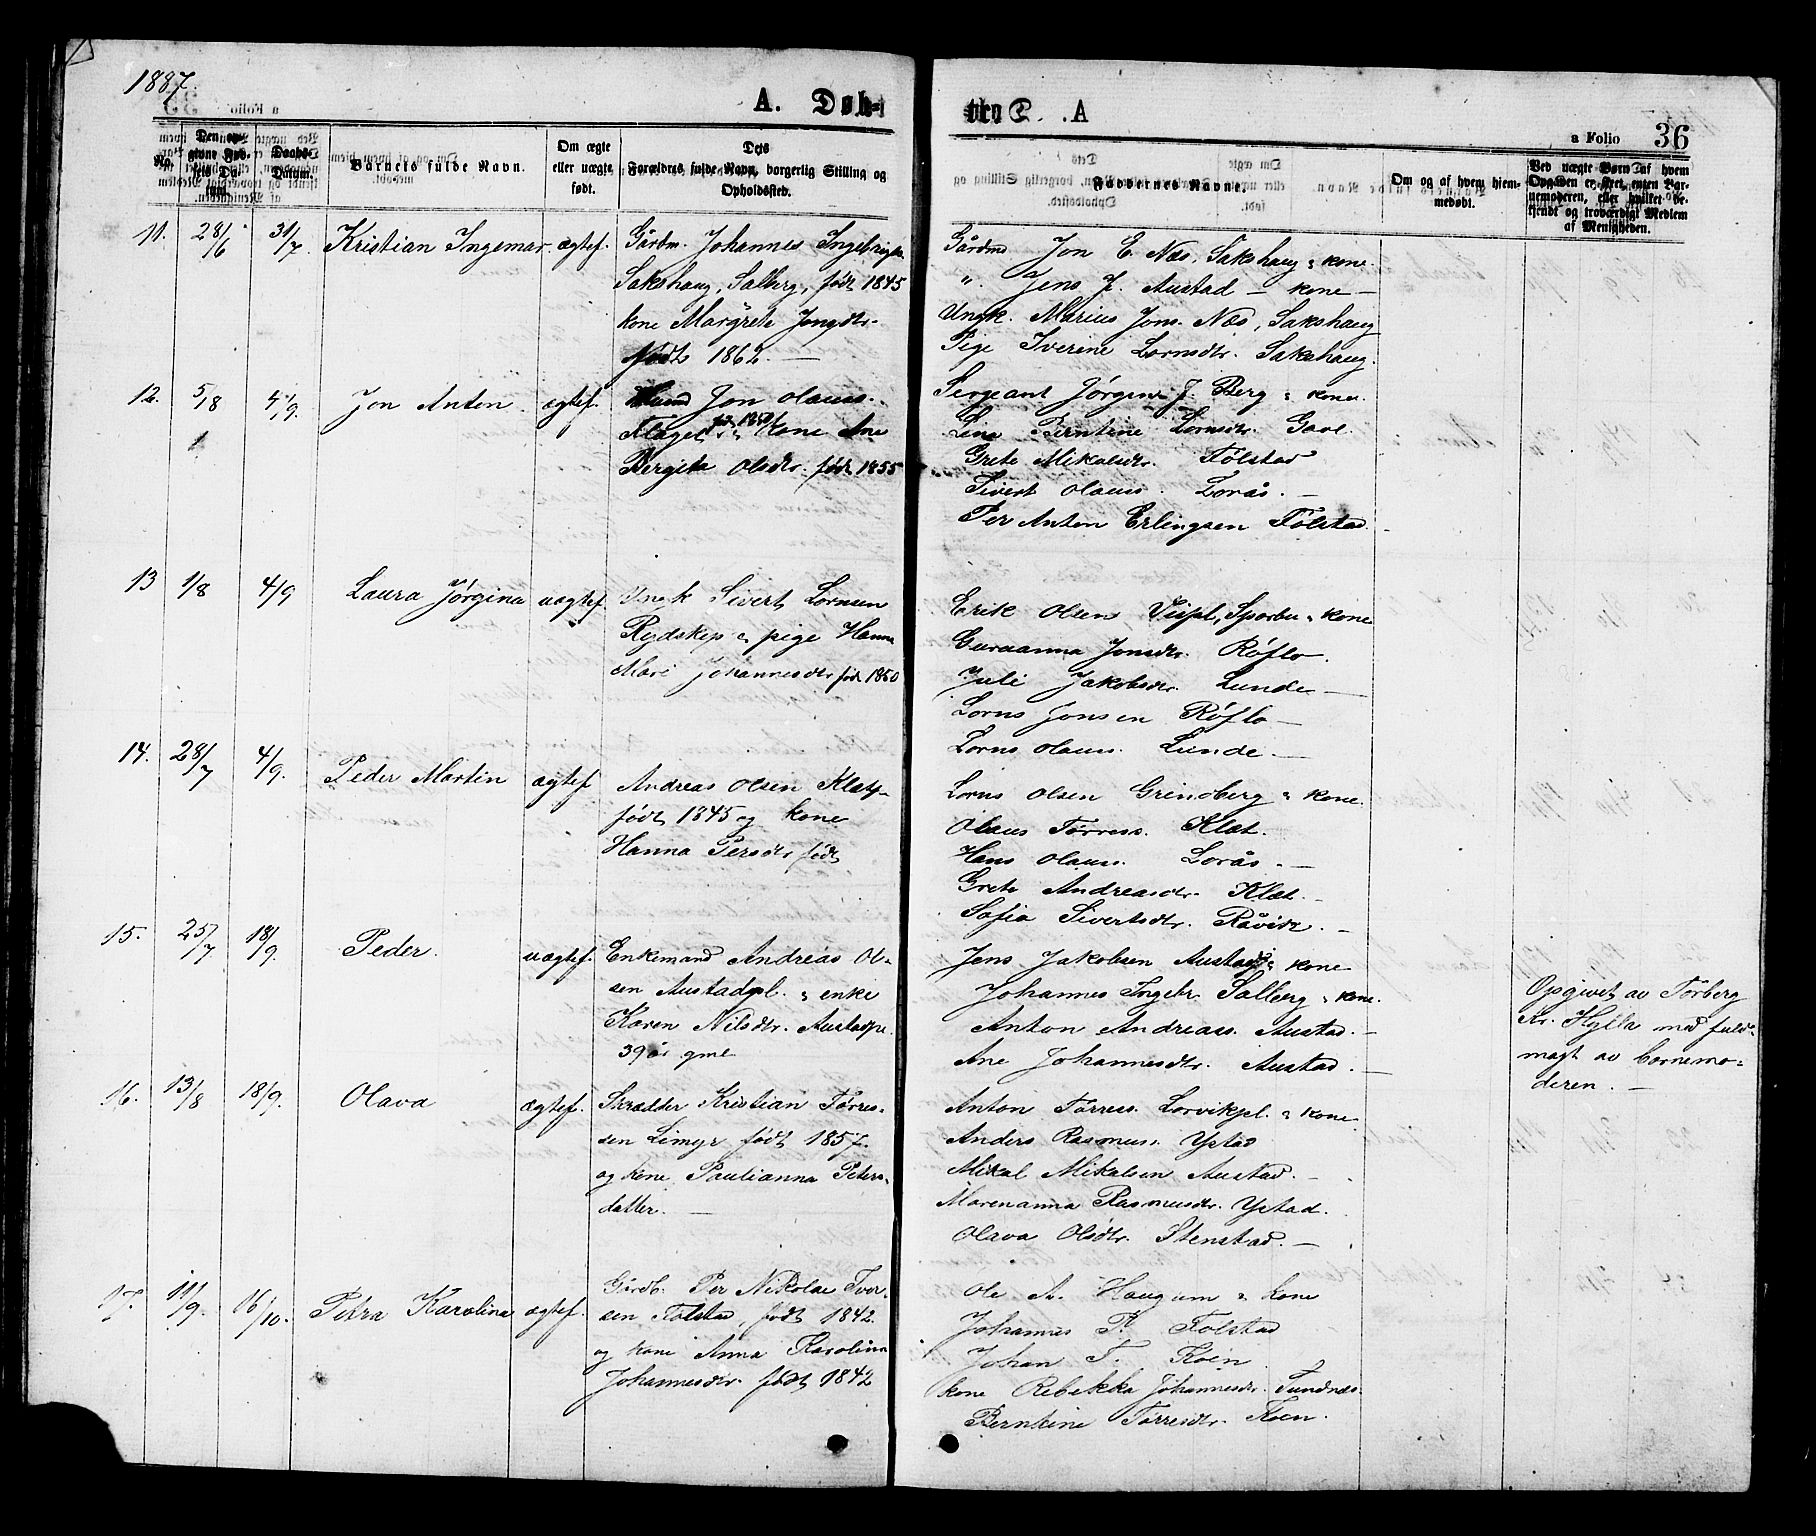 1887.
A. Døb-
te.
a Folio 36
No.
Den opgivne Fødsels Datum.
Daabs-Datum.
Barnets fulde Navn.
Om ægte eller uægte født.
Dets Forældres fulde Navn, borgerlig Stilling og Opholdssted.
Faddernes Navne.
Om og af hvem hjemmedøbt.
Ved uægte Børn af hvem Opgaven er skeet, enten Barnemoderen, eller hvilket bekjendt og troværdigt Medlem af Menigheden.
11. 28/6 31/7. Kristian Ingemar. ægtef.
Gårdm. Johannes Ingebrigts.
Sakshaug, Salberg, født 1845
kone Margrete Jensdtr.
født 1862. —
Gårdm Jon E. Næs, Sakshaug & kone.
". Jens J. Austad — kone —
Ungk. Marius Jons. Næs, Sakshaug
Pige Iverine Lornsdtr. Sakshaug.
12. 5/8 4/9. Jon Anten. ægtef.
Jon Olaus.
kone Ane
Bergita Olsdtr. født 1855
Sergeant Jørgen J. Berg & kone.
Line Berntine Lornsdtr.
Grete Mikalsdtr. Følstad
Sivert Olaus. Lorås. —
Per Anton Erlingsen Følstad.
13 1/8 4/9 Laura Jørgina uægtef.
Ungk Sivert Lornsen
Rydskep & pige Hanna
Mari Johannesdtr født 1860
Erik Olsen Vispl, Sparbu & kone
Guruanna Jonsdtr. Røflo.
Juli Jakobsdtr. Lunde —
Lorns Jonsen Røflo —
Lorns Olaus. Lunde. —
14. 28/7 4/9. Peder Martin ægtef
Andreas Olsen Klæt
født 1845 og kone
Hanna Persdtr født
Lorns Olsen Grindberg & kone.
Olaus Tørress. Klæt.
Hans Olaus. Lorås. —
Grete Andreasdtr. Klæt. —
Sofia Sivertsdtr. Råvik. —
15. 25/7 18/9. Peder. uægtef.
Enkemand Andreas Ol-
sen Austadpl. & enke
Karen Nilsdtr. Austadpl.
39 år gml
Jens Jakobsen Austad & kone
Johannes Ingebr. Salberg & kone.
Anton Andreass. Austad. —
Ane Johannesdtr. Austad. —
Opgivet av Torberg
Kr. Hylla med fuld-
magt av barnemo-
deren. —
16. 13/8 18/9. Olava ægtef.
Skrædder Kristian Tørres-
sen Limyr født 1857.
og kone Paulianna Peters-
datter. —
Anton Tørress. Lorvikpl. & kone.
Anders Rasmus. Ystad
Mikal Mikalsen Austad. —
Marenanna Rasmusdtr. Ystad.
Olava Olsdtr. Stenstad. —
17. 11/9. 16/10. Petra Karolina ægtef.
Gårdb. Per Nikolai Iver-
sen Følstad, født 1842.
og kone Anna Karolina
Johannesdtr. født 1842
Ole A. Haugum & kone
Johannes P. Følstad
Johan T. Koen.
kone Rebekka Johannesdtr. Sundnæs.
Berntine Tørresdtr. Koen.